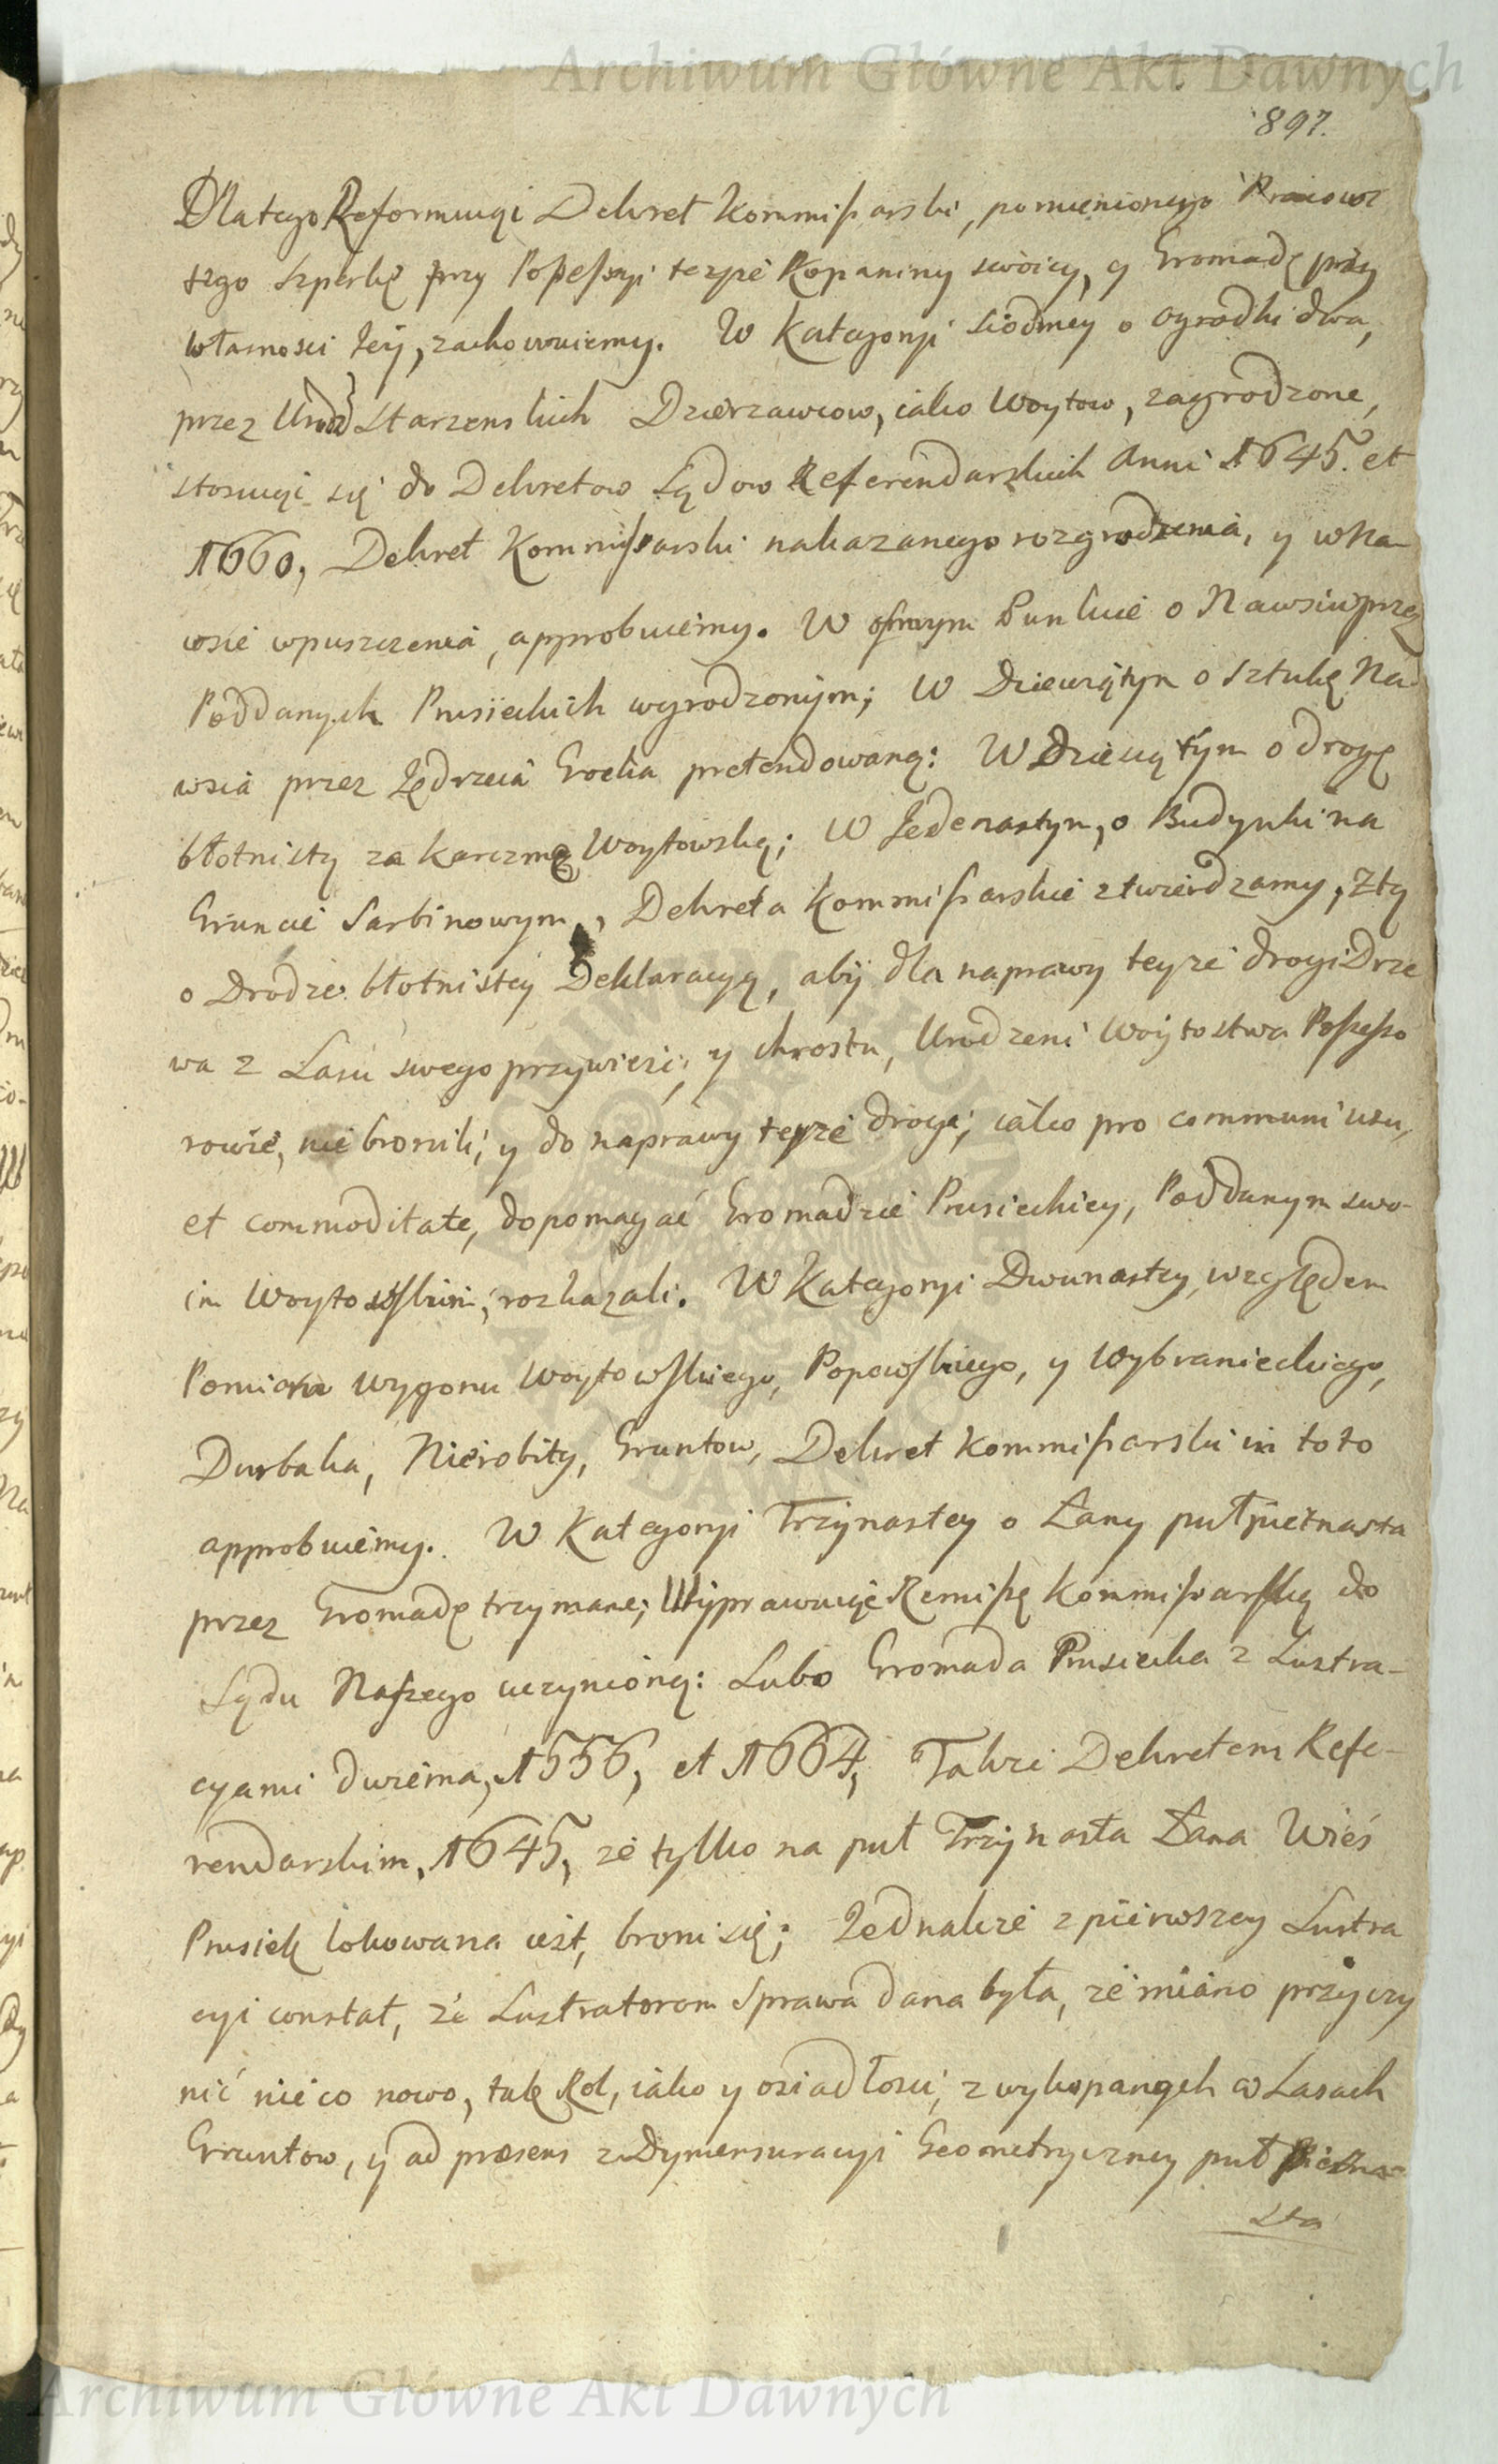 Archiwum Główne Akt Dawnych
897.
Dlatego Reformuiąc Dekret Kommissarski, pomienionego
tego Szperkę przy Possessyi teyże Kopaniny swoiey, y Gromadę przy
własności Jey, zachowuiemy. W Kategoryi siodmey o ogrodki dwa,
przez Urodz Starzenskich Dzierzawcow, iako Woytow, zagrodzone,
stosuiąc się do Dekretow Sądow Referendarskich Anni 1645. et
1660, Dekret Kommissarski nakazanego rozgrodzenia, y w Na-
wsie wpuszczenia, approbuiemy. W osmym Punkcie o Nawsiu przez
Poddanych Prusieckich wygrodzonym; W Dziewiątym o sztukę Na-
wsia przez Jędrzeia Grocha pretendowaną: W Dziesiątym o drogę
błotnistą za karczmą Woytowską; W Jedenastym, o Budynki na
Gruncie Sarbinowym, Dekreta Kommissarskie ztwierdzamy, z tą
o Drodze błotnistey Deklaracyą, aby dla naprawy teyże drogi Drze
wa z Lasu swego przywieść, y chrostu, Urodzeni Woytostwa Possesso
rowie, nie bronili, y do naprawy teyże drogi, iako pro communi usu,
et commoditate, dopomagać Gromadzie Prusieckiey, Poddanym swo-
im Woytowskim, rozkazali. W Kategoryi Dwunastey, względem
Pomiaru wygonu Woytowskiego, Popowskiego, y Wybranieckiego,
Durbaka, Nierobity, Gruntow, Dekret Kommissarski in toto
approbuiemy. W Kategoryi Trzynastey o Łany puł pietnasta
przez Gromadę trzymane; Wyprawuiąc Remissę Kommissarską do
Sądu Naszego uczynioną: Lubo Gromada Prusiecka z Lustra-
cyami dwiema, 1556, et 1664, Także Dekretem Refe-
rendarskim, 1645, że tylko na puł Trzynasta Łana Wieś
Prusiek lokowana iest, broni się; Jednakże z pierwszey Lustra
cyi constat, że Lustratorom Sprawa dana była, że miano przyczy
nić nieco nowo, tak Rol, iako y osiadłości, z wykopanych w Lasach
Gruntow, y ad præsens z Dymensuracyi Geometryczney puł Pietna-
sta
Archiwum Główne Akt Dawnych